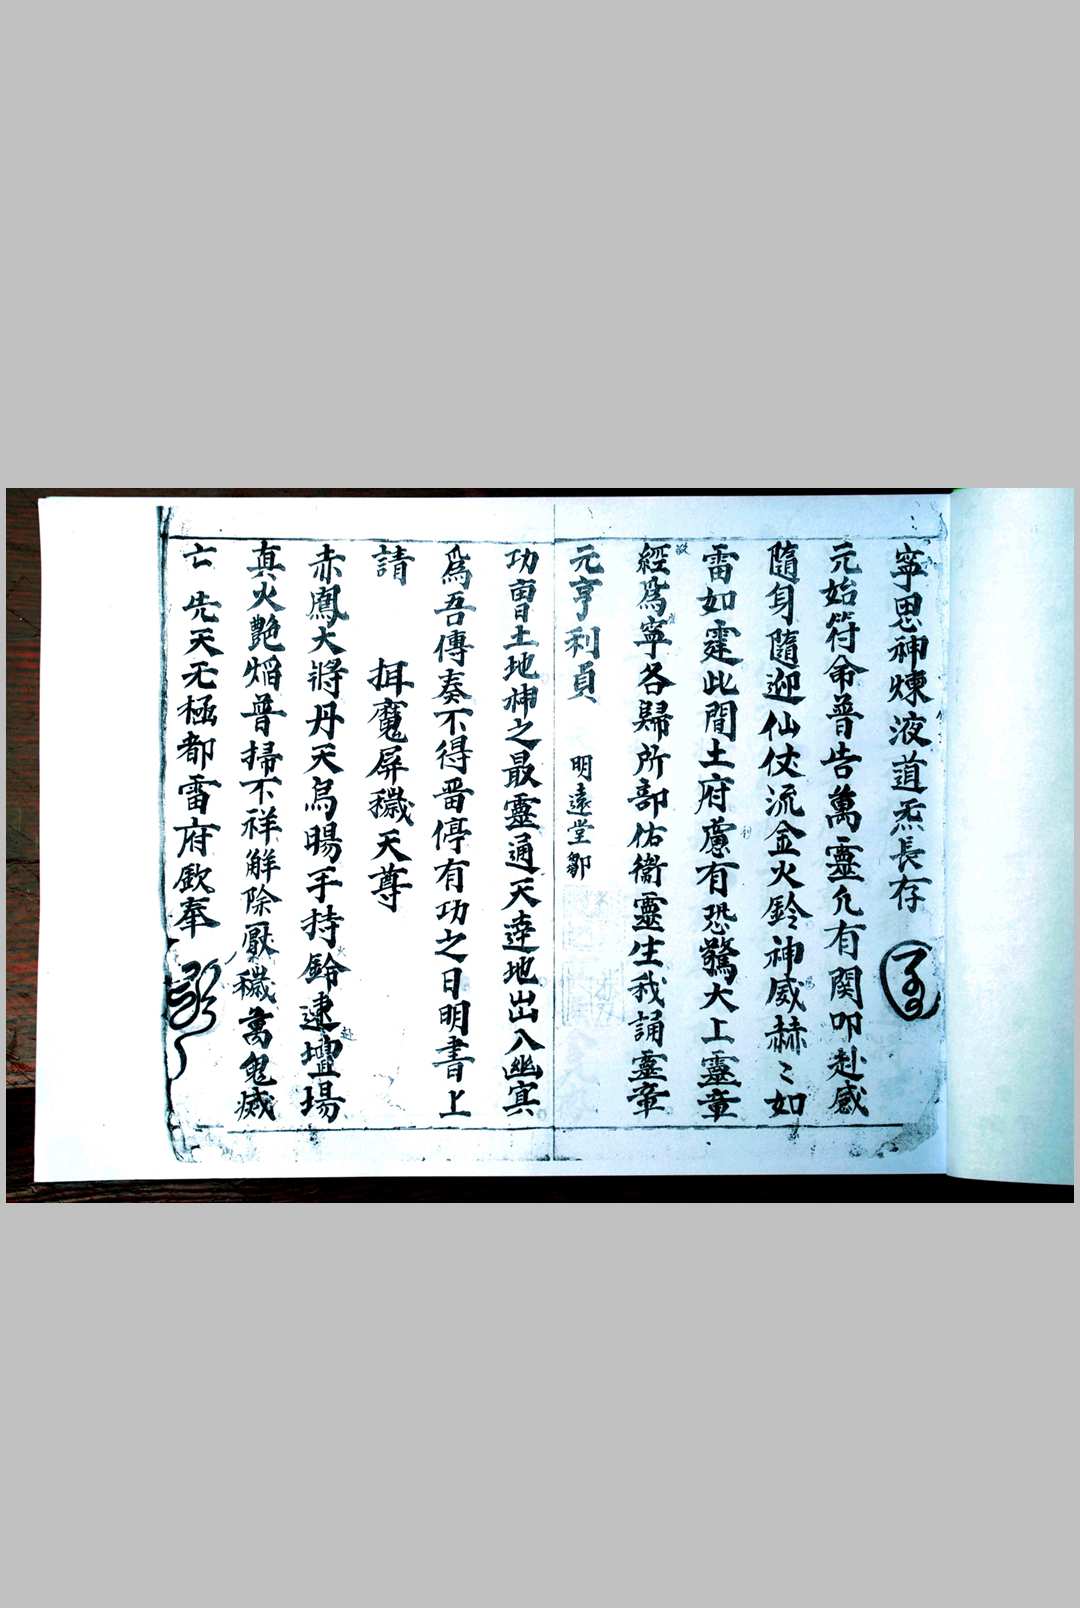 寧思神煉液道炁長存
元始符命普告萬靈允有関叩赴感
隨身隨迎仙仗流金火鈴神威赫〻如
雷如霆此間土府慮有恐驚大上靈章
經為寧各歸所部佑衛靈生我誦靈章
元亨利貞 明遠堂鄒
功曹土地神之最靈通天達地出入幽冥
為吾傳奏不得畱停有功之日明書上
請 𢬵魔屏穢天尊
赤鳳大將丹天烏暘手持鈴逮壇場
真火艷焰普掃不祥解除厭穢萬鬼滅
亡 先天无極都雷府欽奉